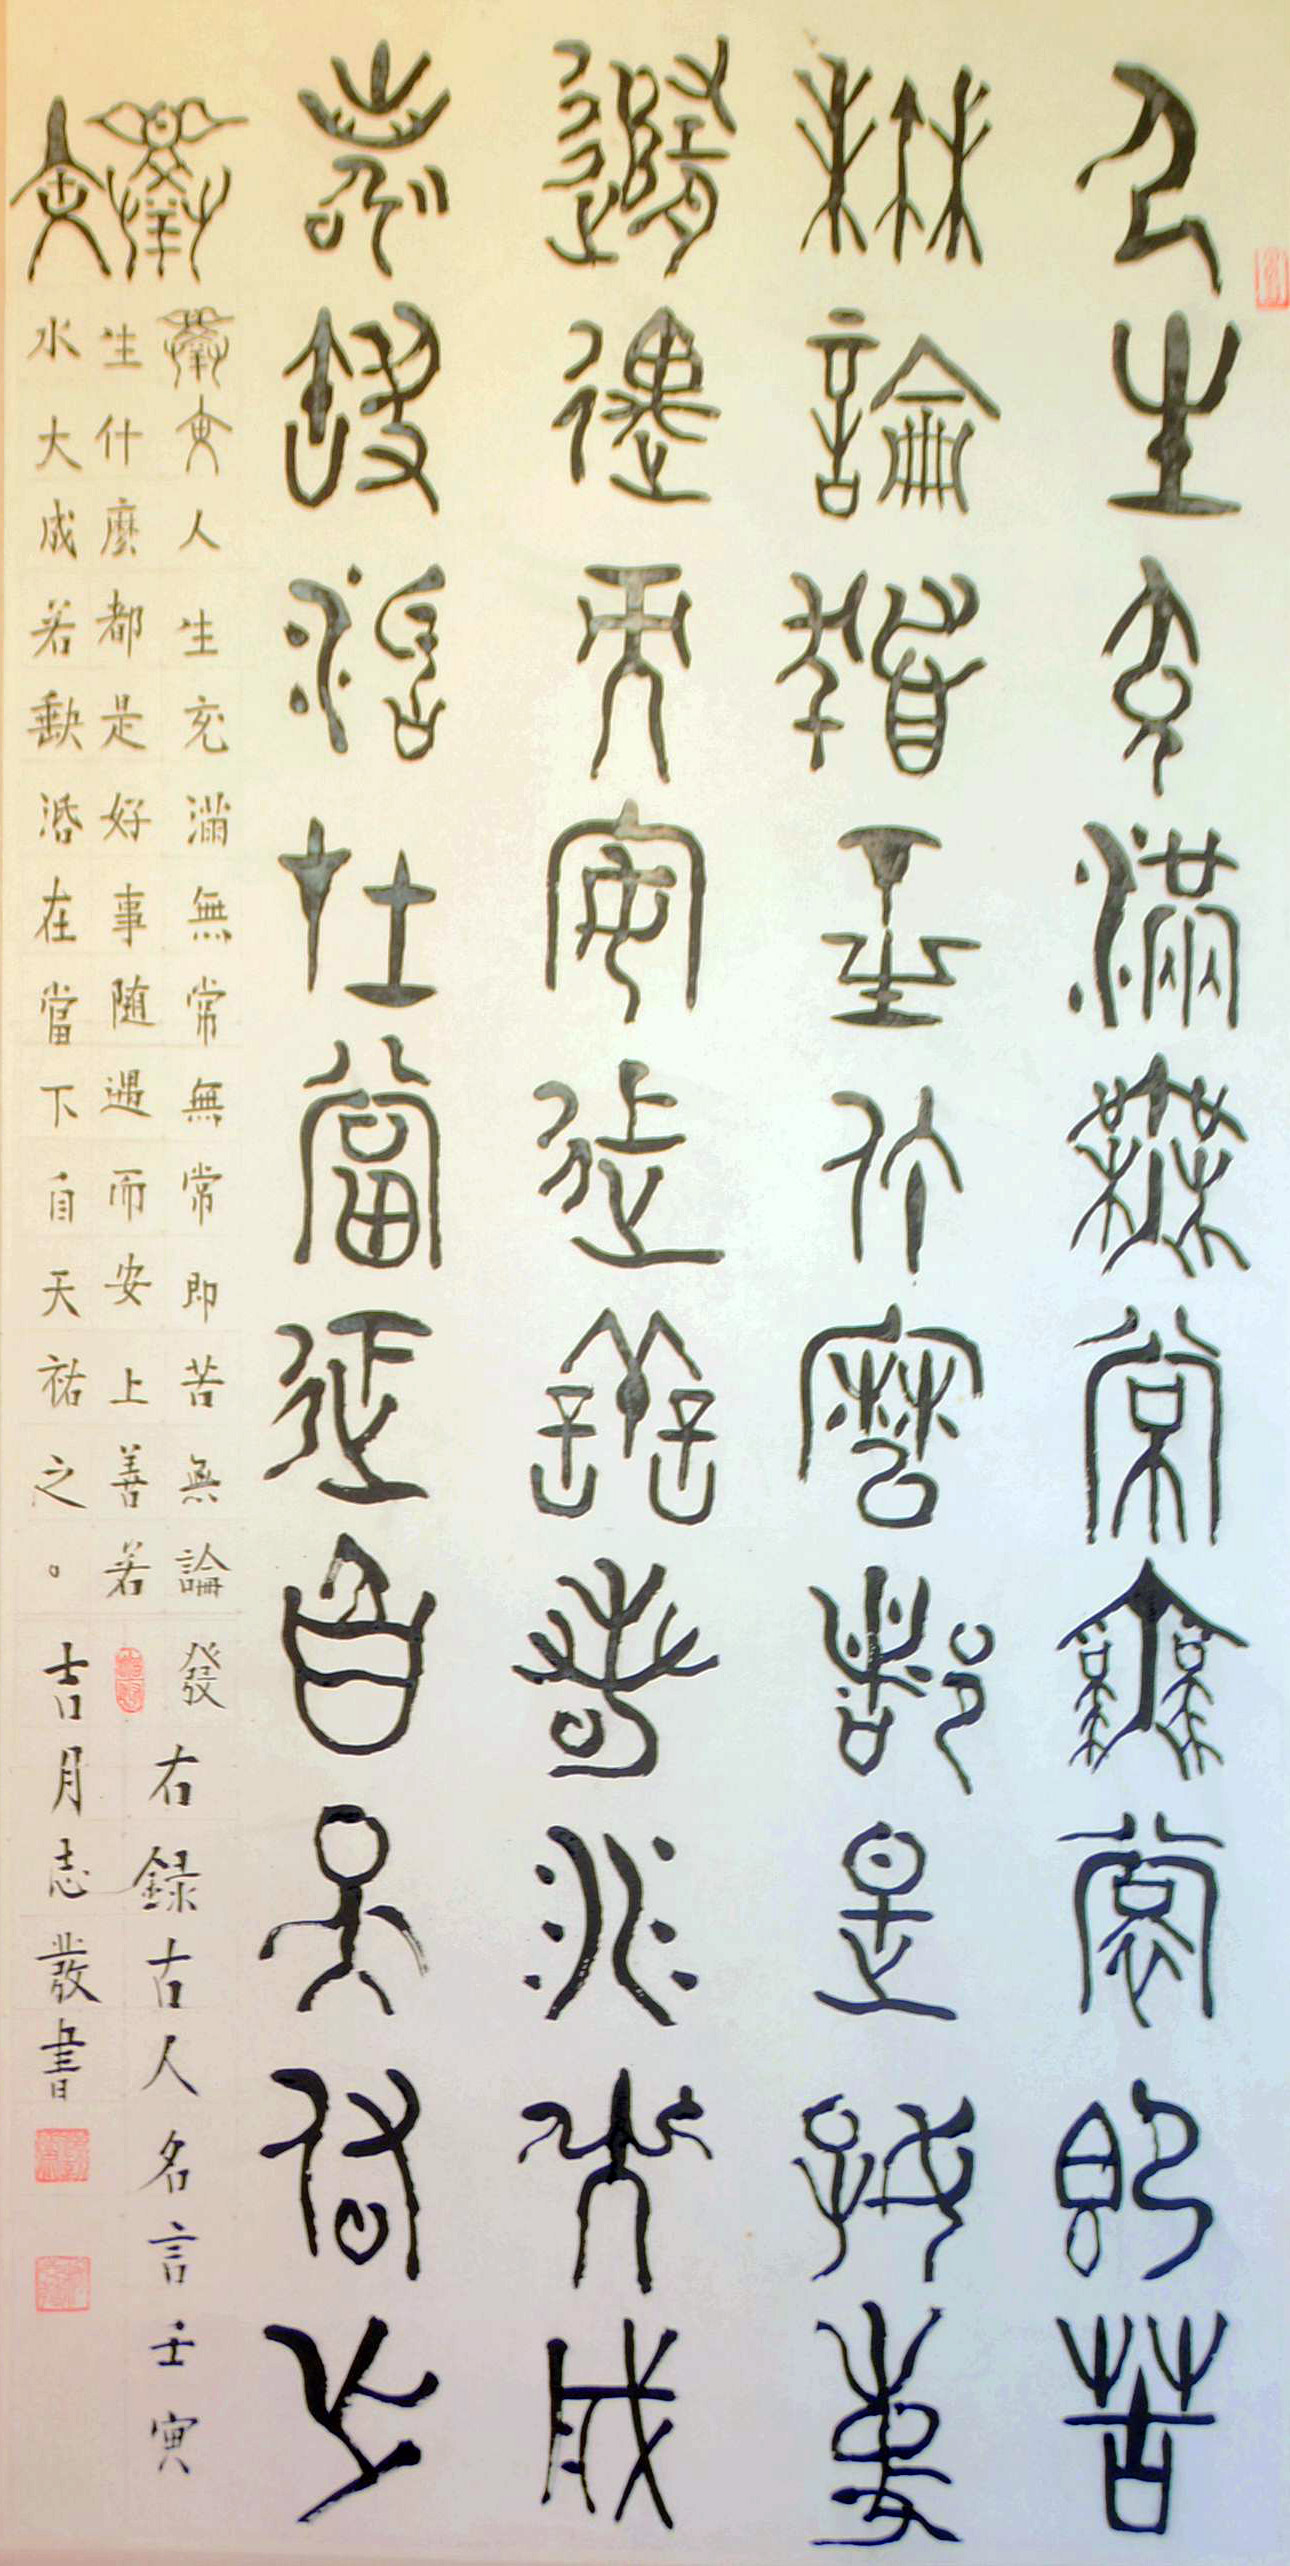 人生充滿無常無常即苦
無論發生什麼都是好事
隨遇而安上善若水大成
若缺活在當下自天祐之
釋文
釋文人生充滿無常無常即苦無論發
生什麼都是好事随遇而安上善若
水大成若缺活在當下自天祐之。
右錄古人名言壬寅
吉月志書